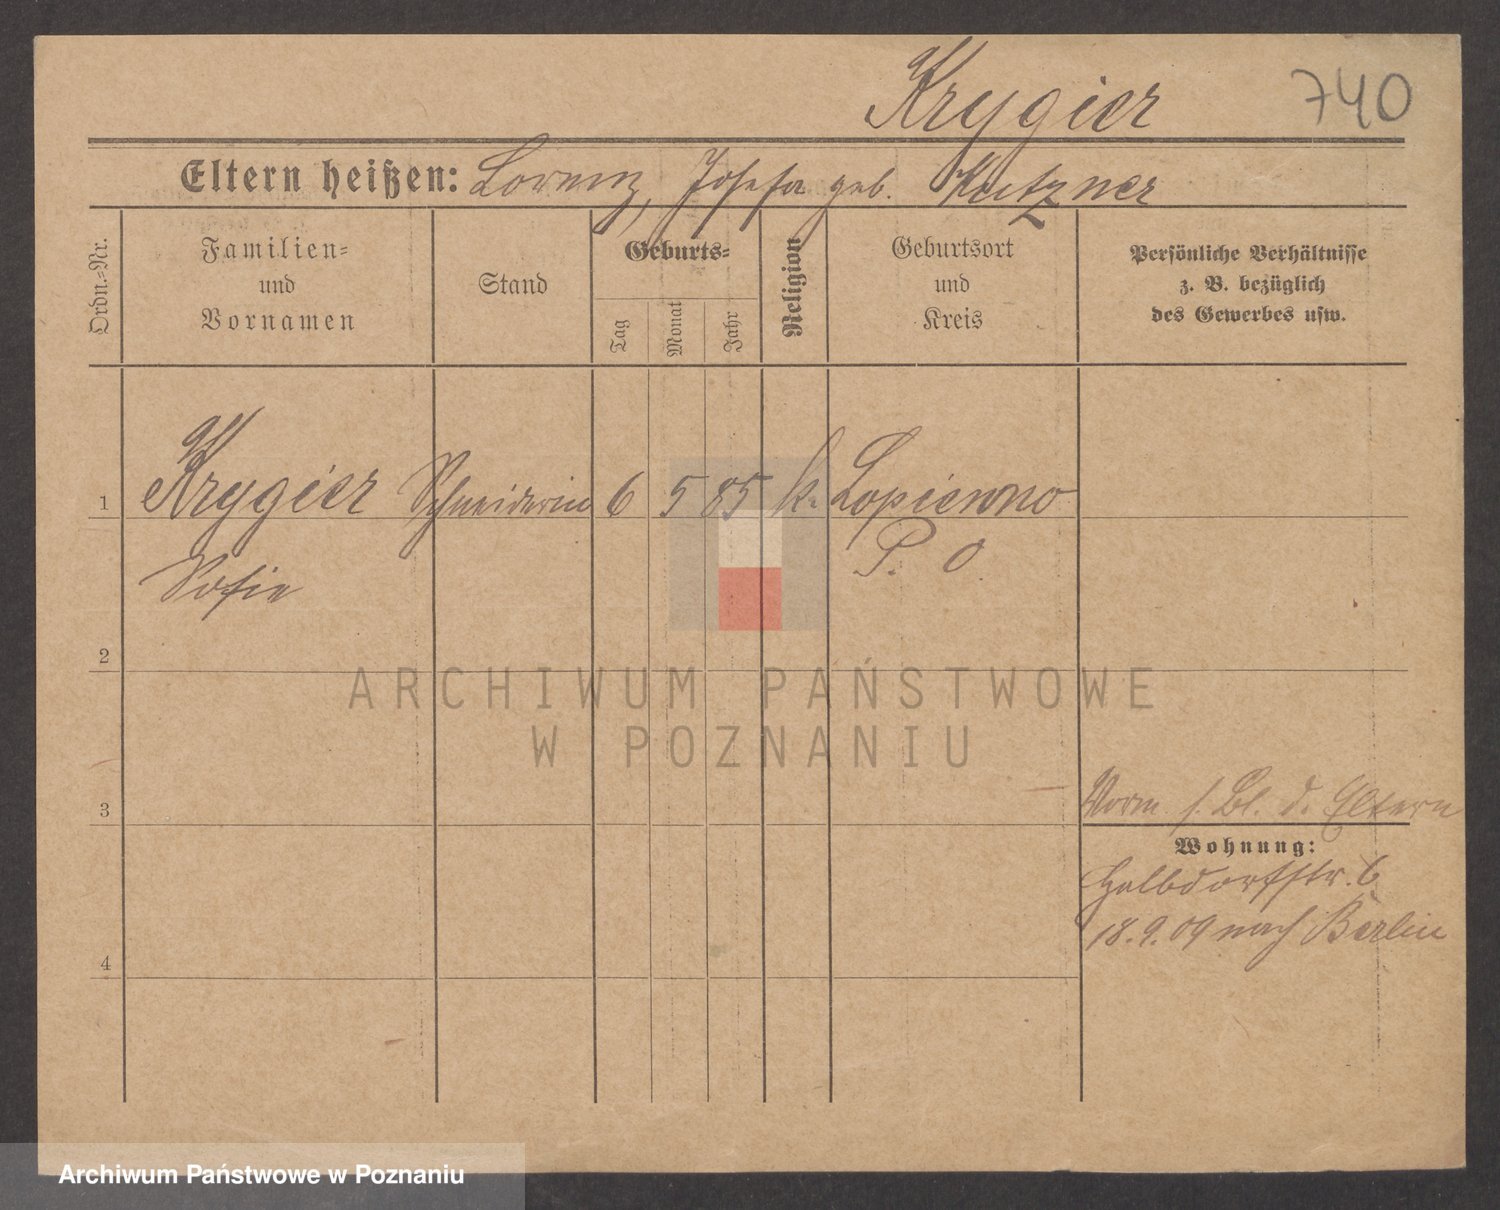 Krygier 740
Eltern heißen: Lorenz, Josefa geb. Kutzner
Ordn.=Nr.
Familien=
und
Vornamen
Stand
Geburts=
Tag
Monat
Jahr
Religion
Geburtsort
und
Kreis
Persönliche Verhältnisse
z. B. bezüglich
des Gewerbes usw.
1 Krygier Schneiderin 6 5 85 k. Lopienno
P. O
Sofie
2
ARCHIWUM PAŃSTWOWE
W POZNANIU
3 Vorm s. Bl. d. Eltern
Wohnung:
Halbdorfstr. 6
18.9.09 nach Berlin
4
Archiwum Państwowe w Poznaniu